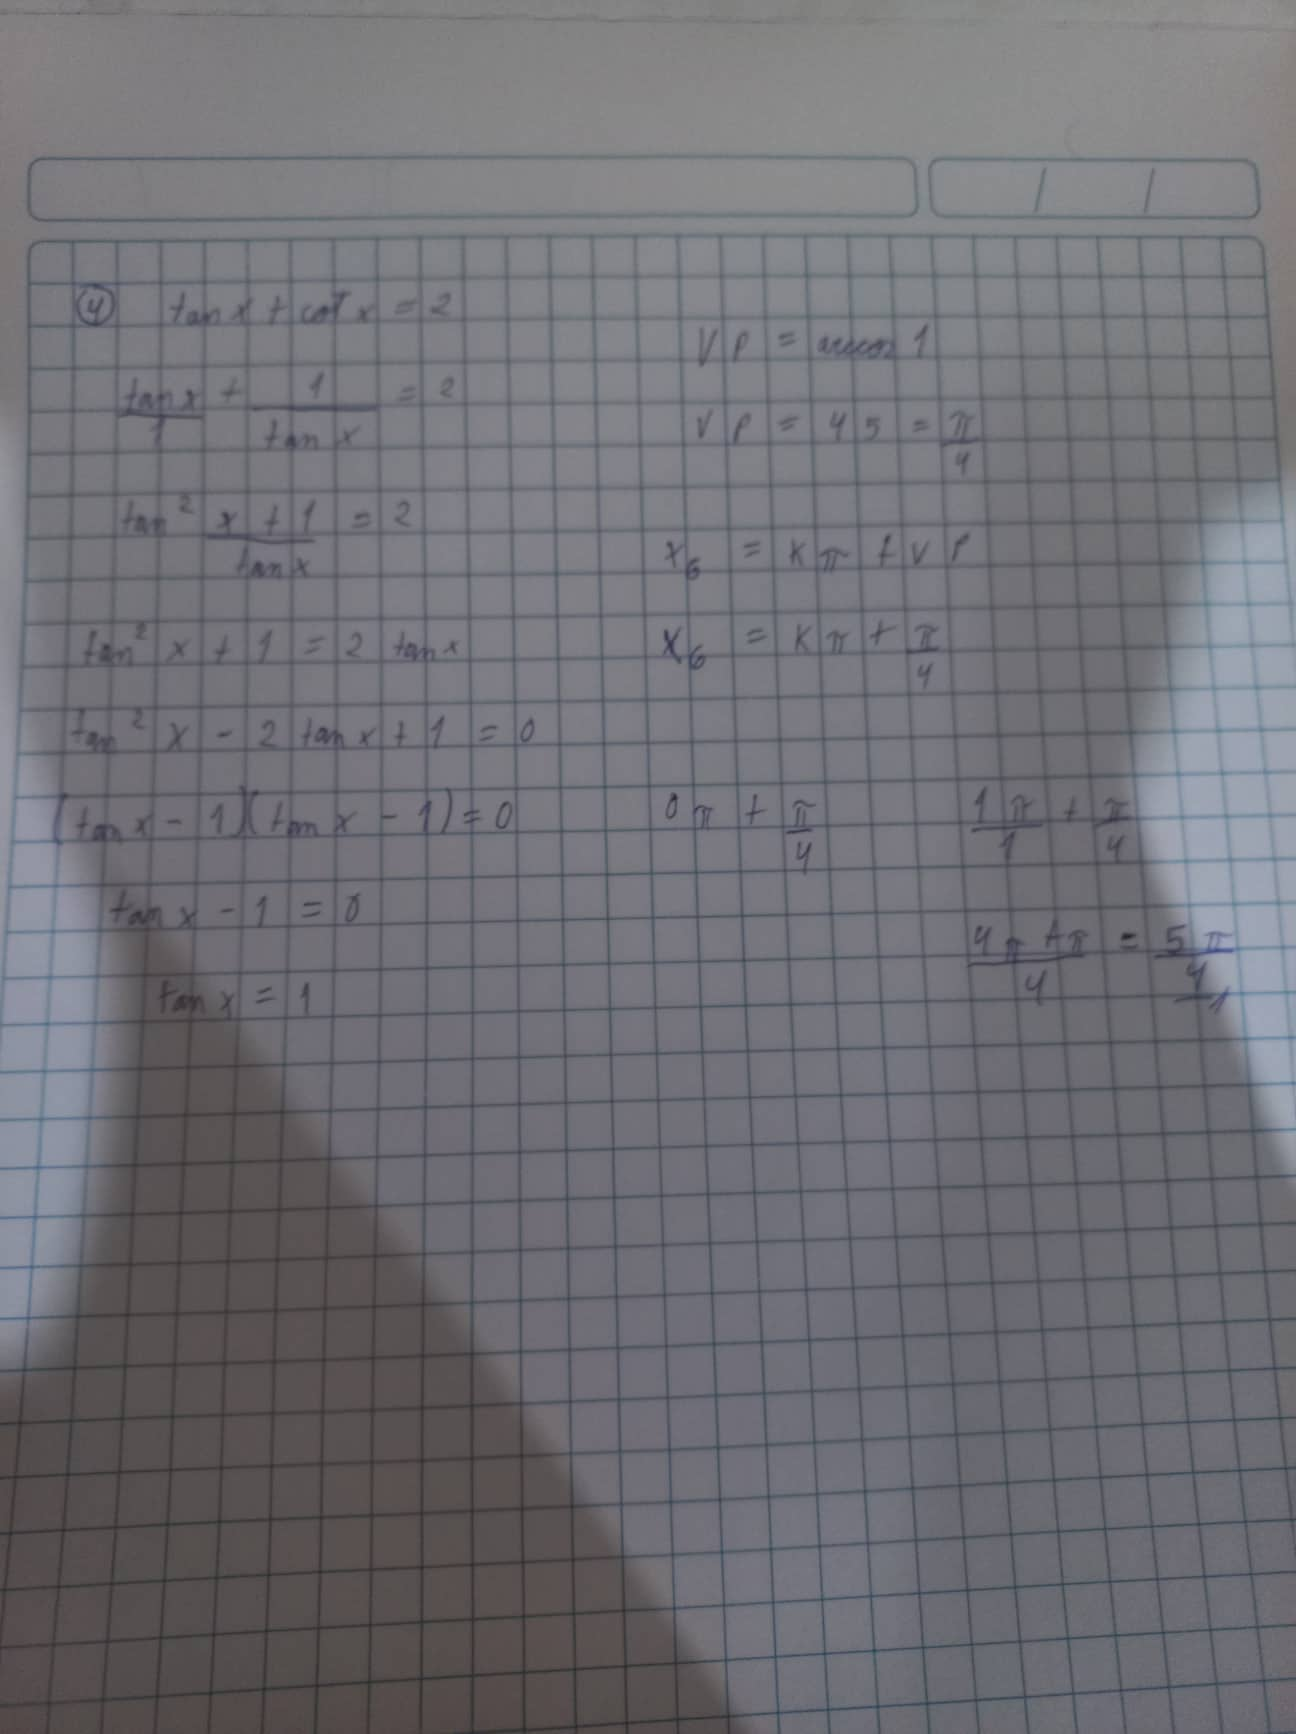 4 tan x + cot x = 2
tan x/1 + 1/tan x = 2
tan² x + 1/tan x = 2
tan² x + 1 = 2 tan x
tan² x - 2 tan x + 1 = 0
(tan x - 1)(tan x - 1) = 0
tan x - 1 = 0
tan x = 1
V P = 1
V P = 45 = π/4
x6 = K π + V P
x6 = K π + π/4
0 π + π/4
1 π/1 + π/4
4 π + π/4 = 5 π/4